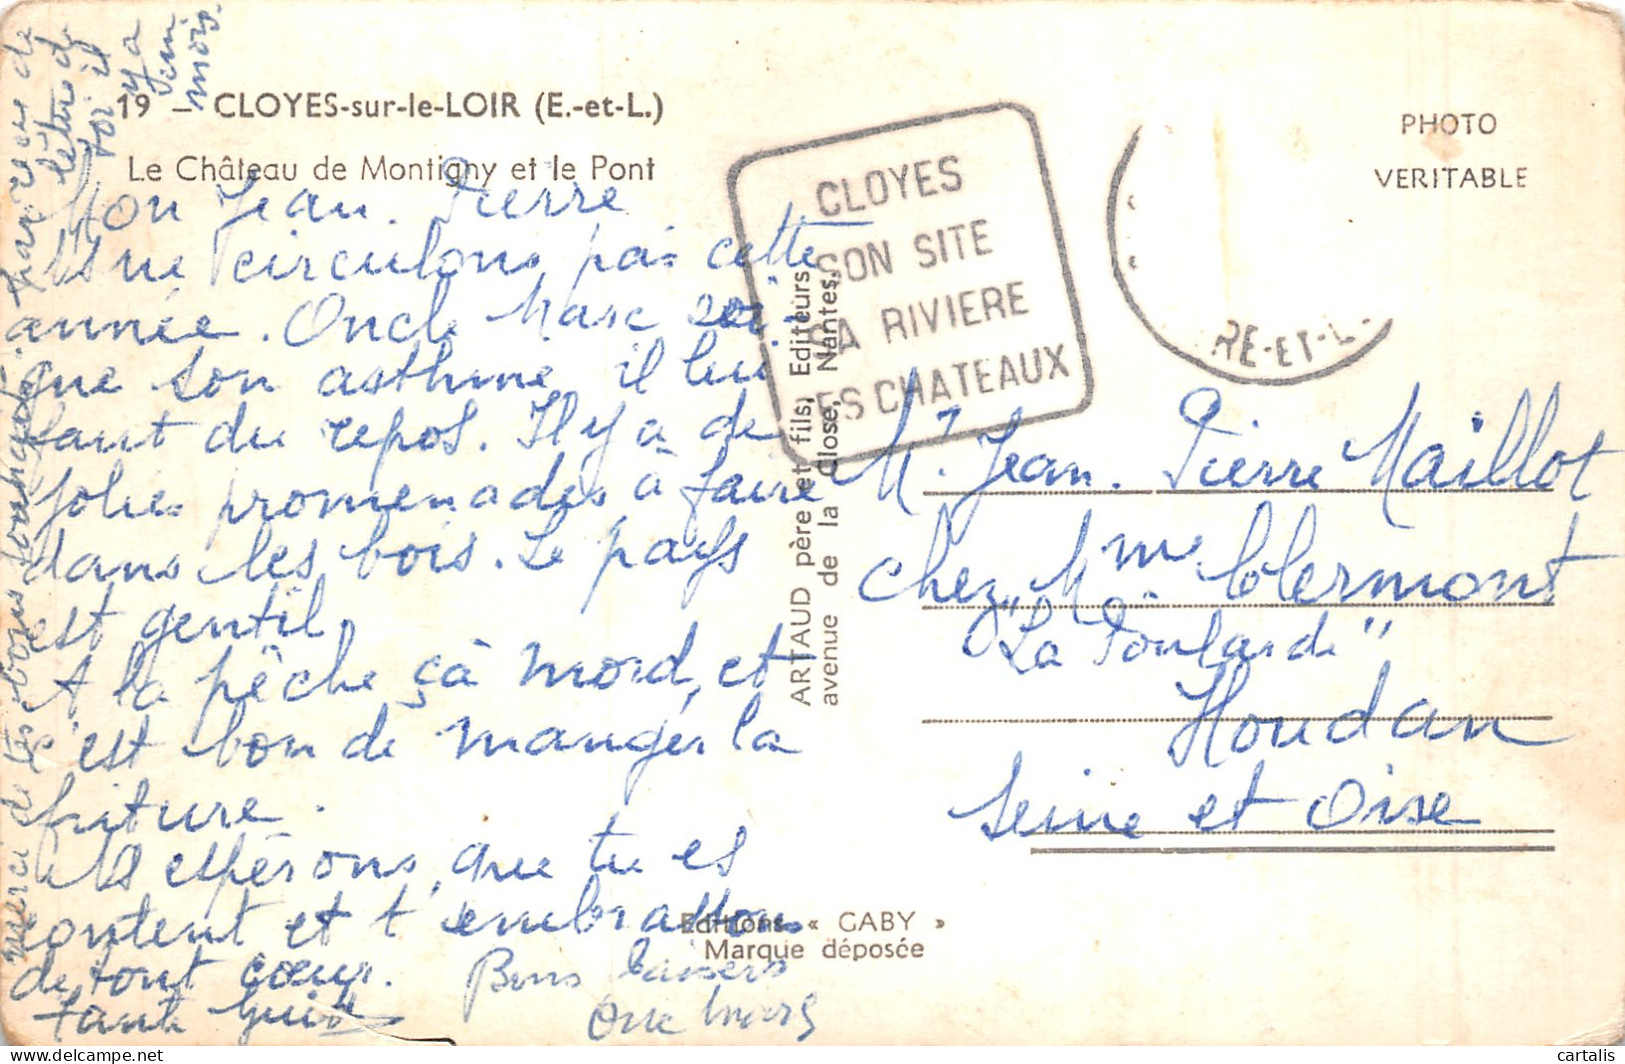 19 - CLOYES-sur-le-LOIR (E.-et-L.)
Le Château de Montigny et le Pont
Mon Jean. Pierre
ns ne circulons pas cette
année. Oncle Marc soi-
gne son asthme, il lui
faut du repos. Il y a de
jolies promenades à faire
dans les bois. Le pays
est gentil.
A la pêche çà mord, et
c'est bon de manger la
friture.
ns espérons que tu es
content et t'embrassons
de tout cœur.
Tante
Bons baisers
Marc
Merci de tes bons souhaits.
lettre de
toi il
y a
mois.
CLOYES
SON SITE
SA RIVIERE
SES CHATEAUX
RE-ET-L
PHOTO
VERITABLE
ARTAUD père et fils, Editeurs
avenue de la close, Nantes.
Mr Jean. Pierre Maillot
chez Mme Clermont
"La Poularde"
Houdan
Seine et Oise
Editions « GABY »
Marque déposée
cartalis
delcampe.net